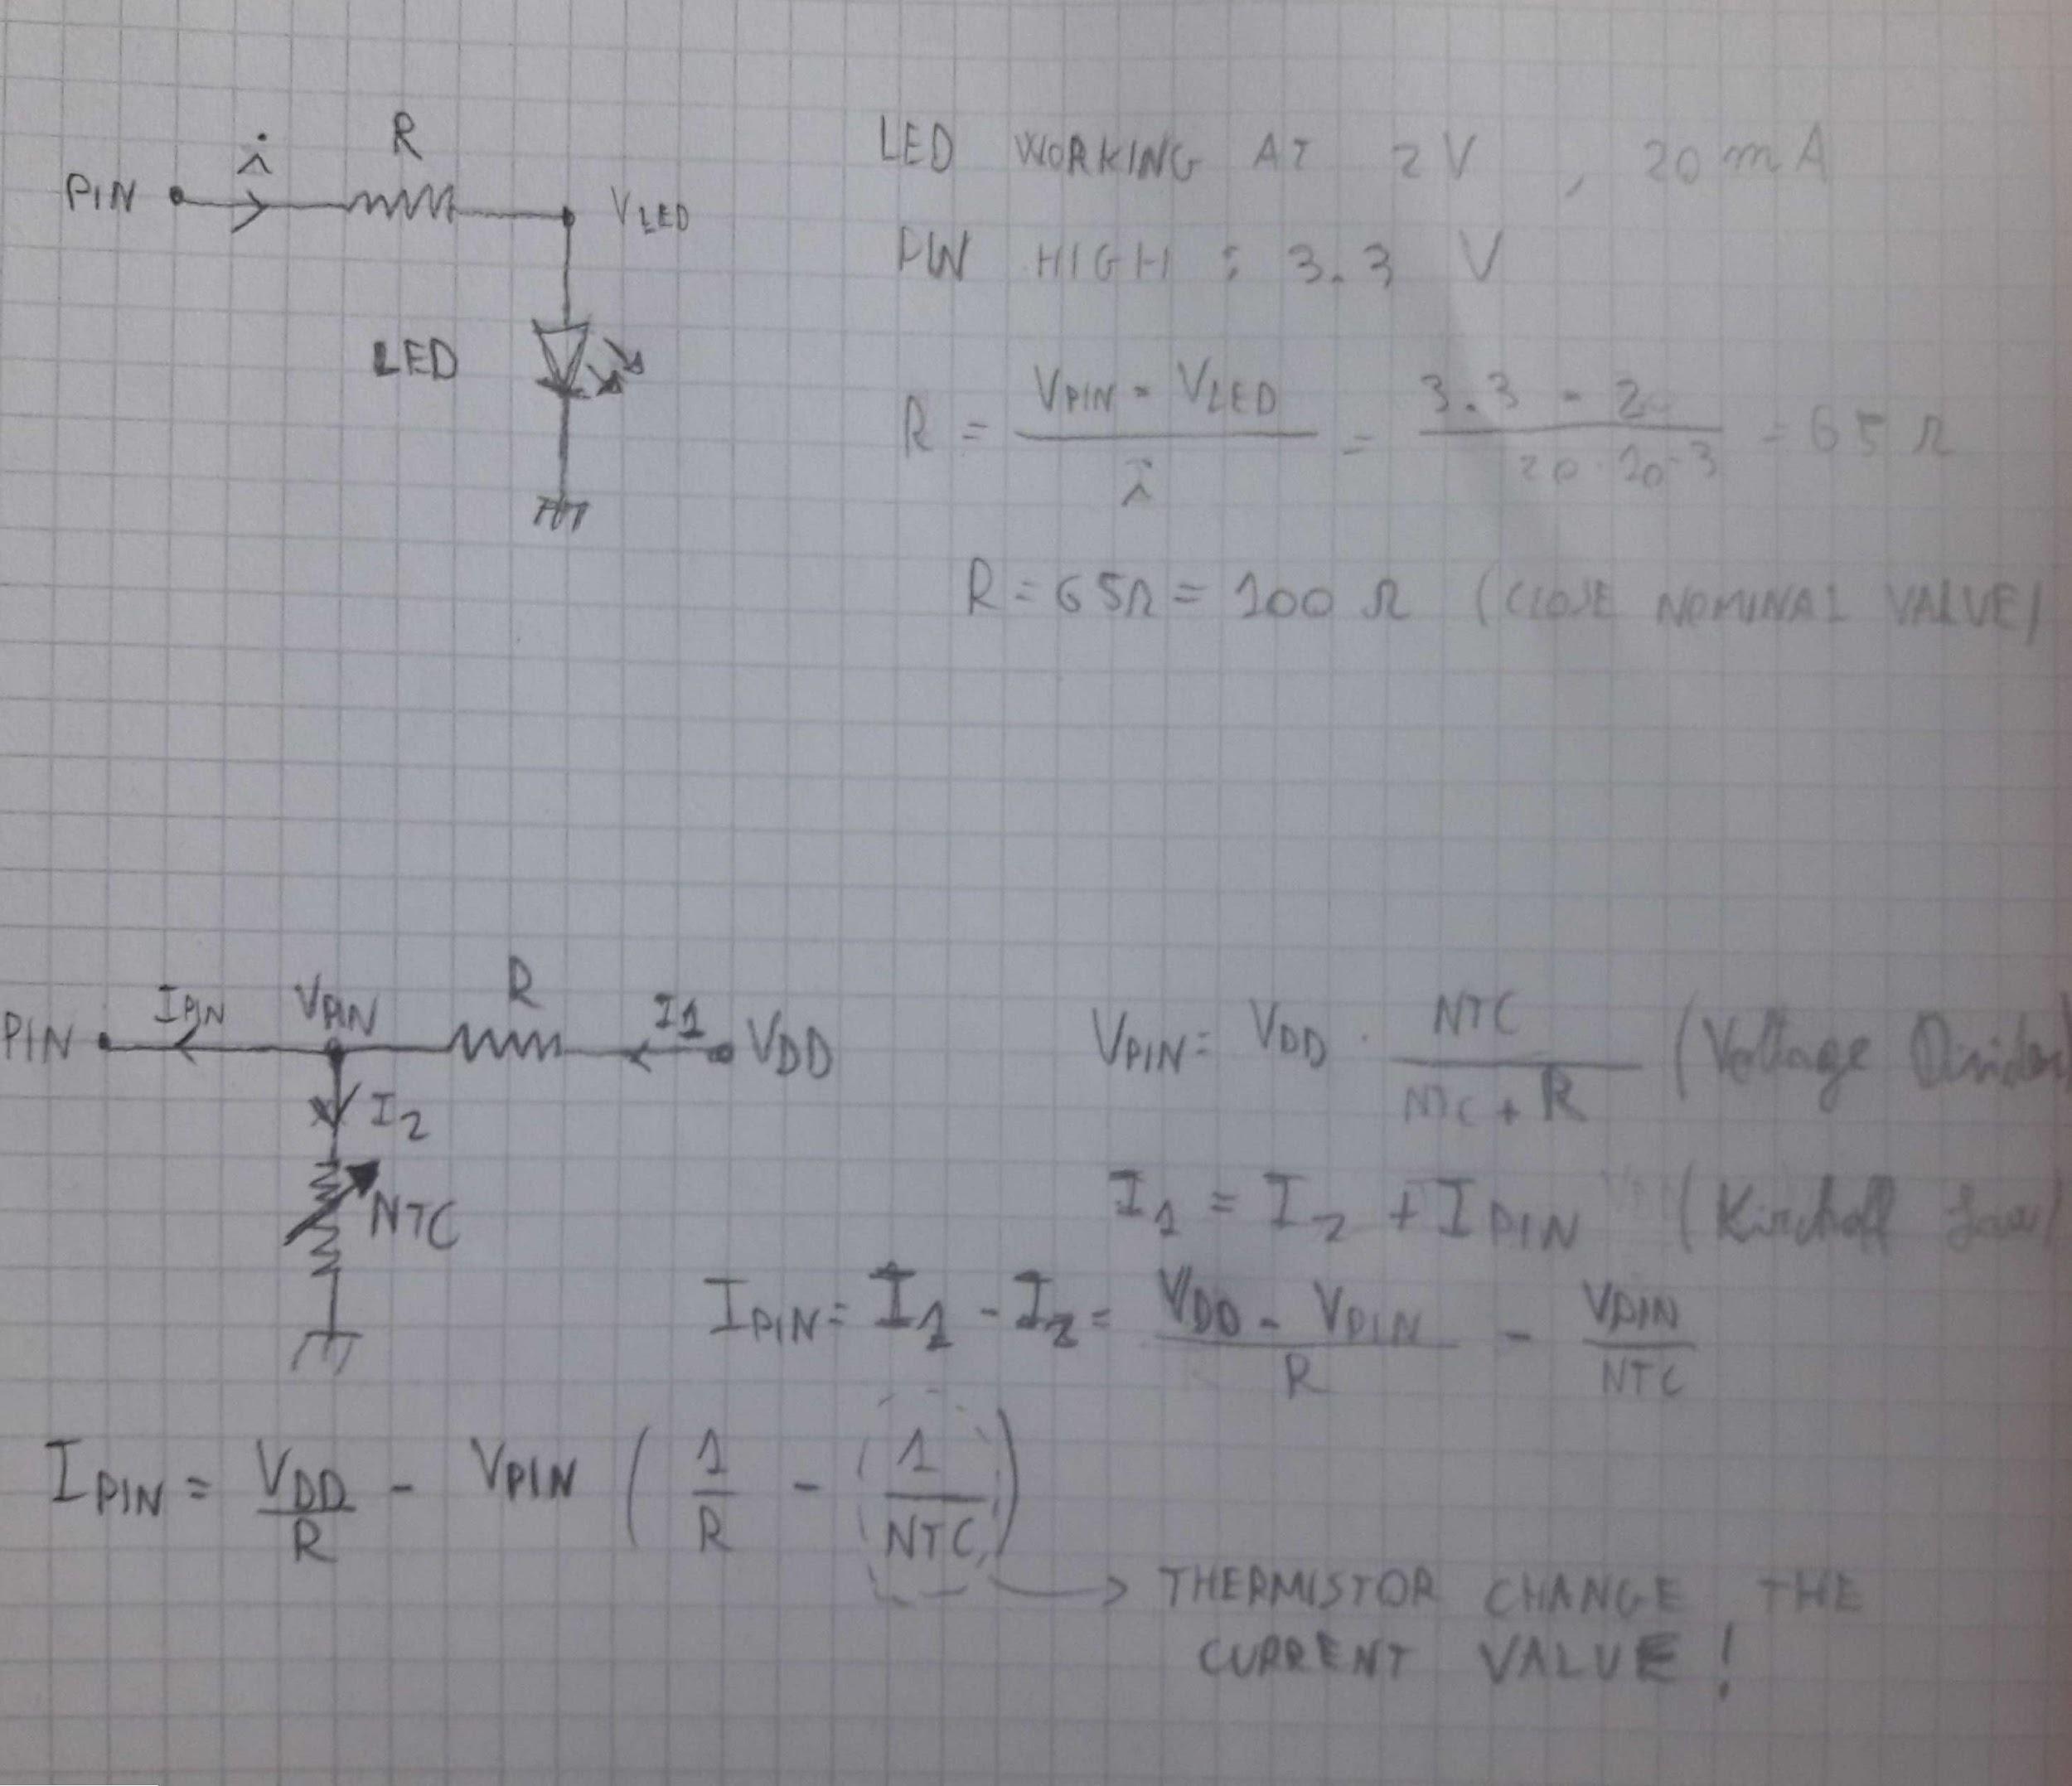 PIN i R VLED
LED
LED WORKING AT 2V , 20 mA
PIN HIGH : 3.3 V
R = (VPIN - VLED) / i = (3.3 - 2) / (20 · 10^-3) = 65 Ω
R = 65Ω = 100 Ω (CLOSE NOMINAL VALUE)
PIN IPIN VPIN R I1 VDD
I2
NTC
VPIN = VDD · NTC / (NTC + R) (Voltage Divider)
I1 = I2 + IPIN (Kirchoff Law)
IPIN = I1 - I2 = (VDD - VPIN) / R - VPIN / NTC
IPIN = VDD / R - VPIN ( 1 / R - 1 / NTC )
THERMISTOR CHANGE THE
CURRENT VALUE !